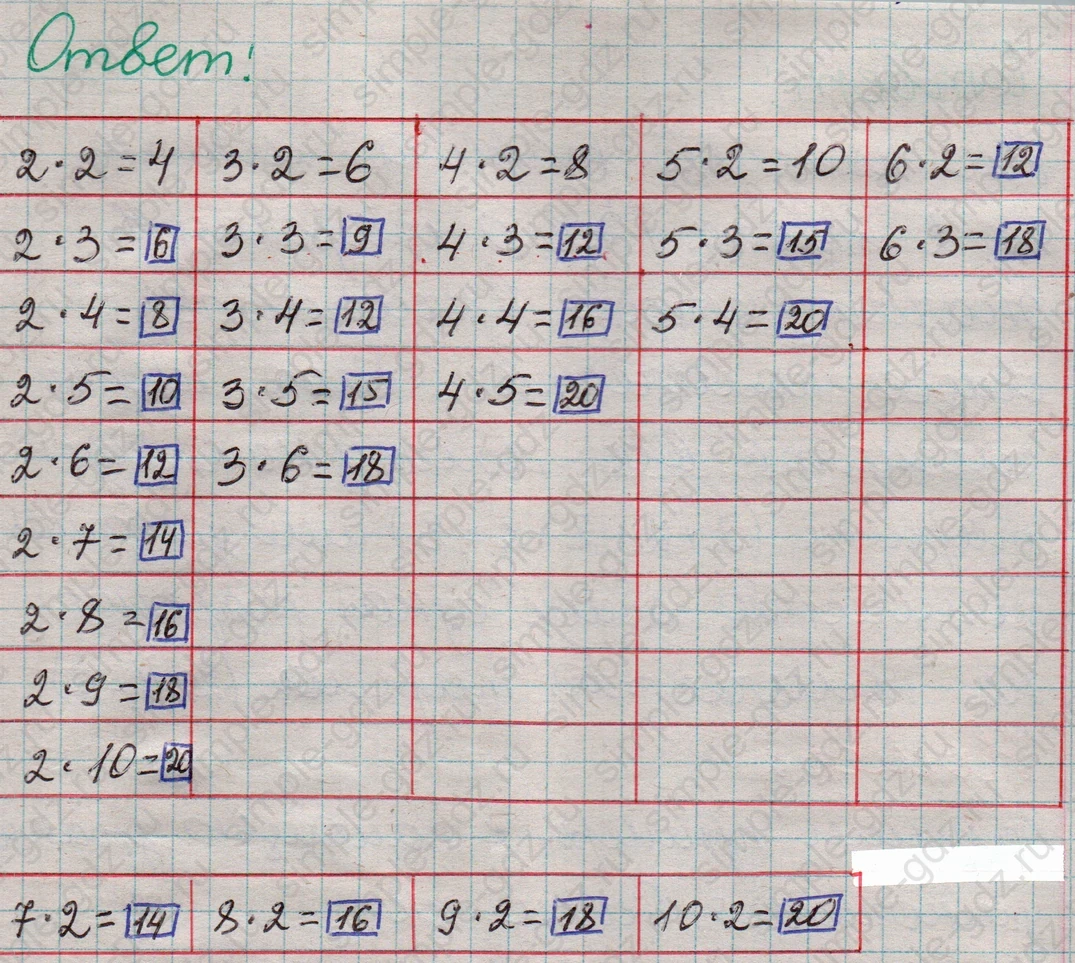 Ответ:
2·2=4 3·2=6 4·2=8 5·2=10 6·2=12
2·3=6 3·3=9 4·3=12 5·3=15 6·3=18
2·4=8 3·4=12 4·4=16 5·4=20
2·5=10 3·5=15 4·5=20
2·6=12 3·6=18
2·7=14
2·8=16
2·9=18
2·10=20
7·2=14 8·2=16 9·2=18 10·2=20
simple-gdz.ru